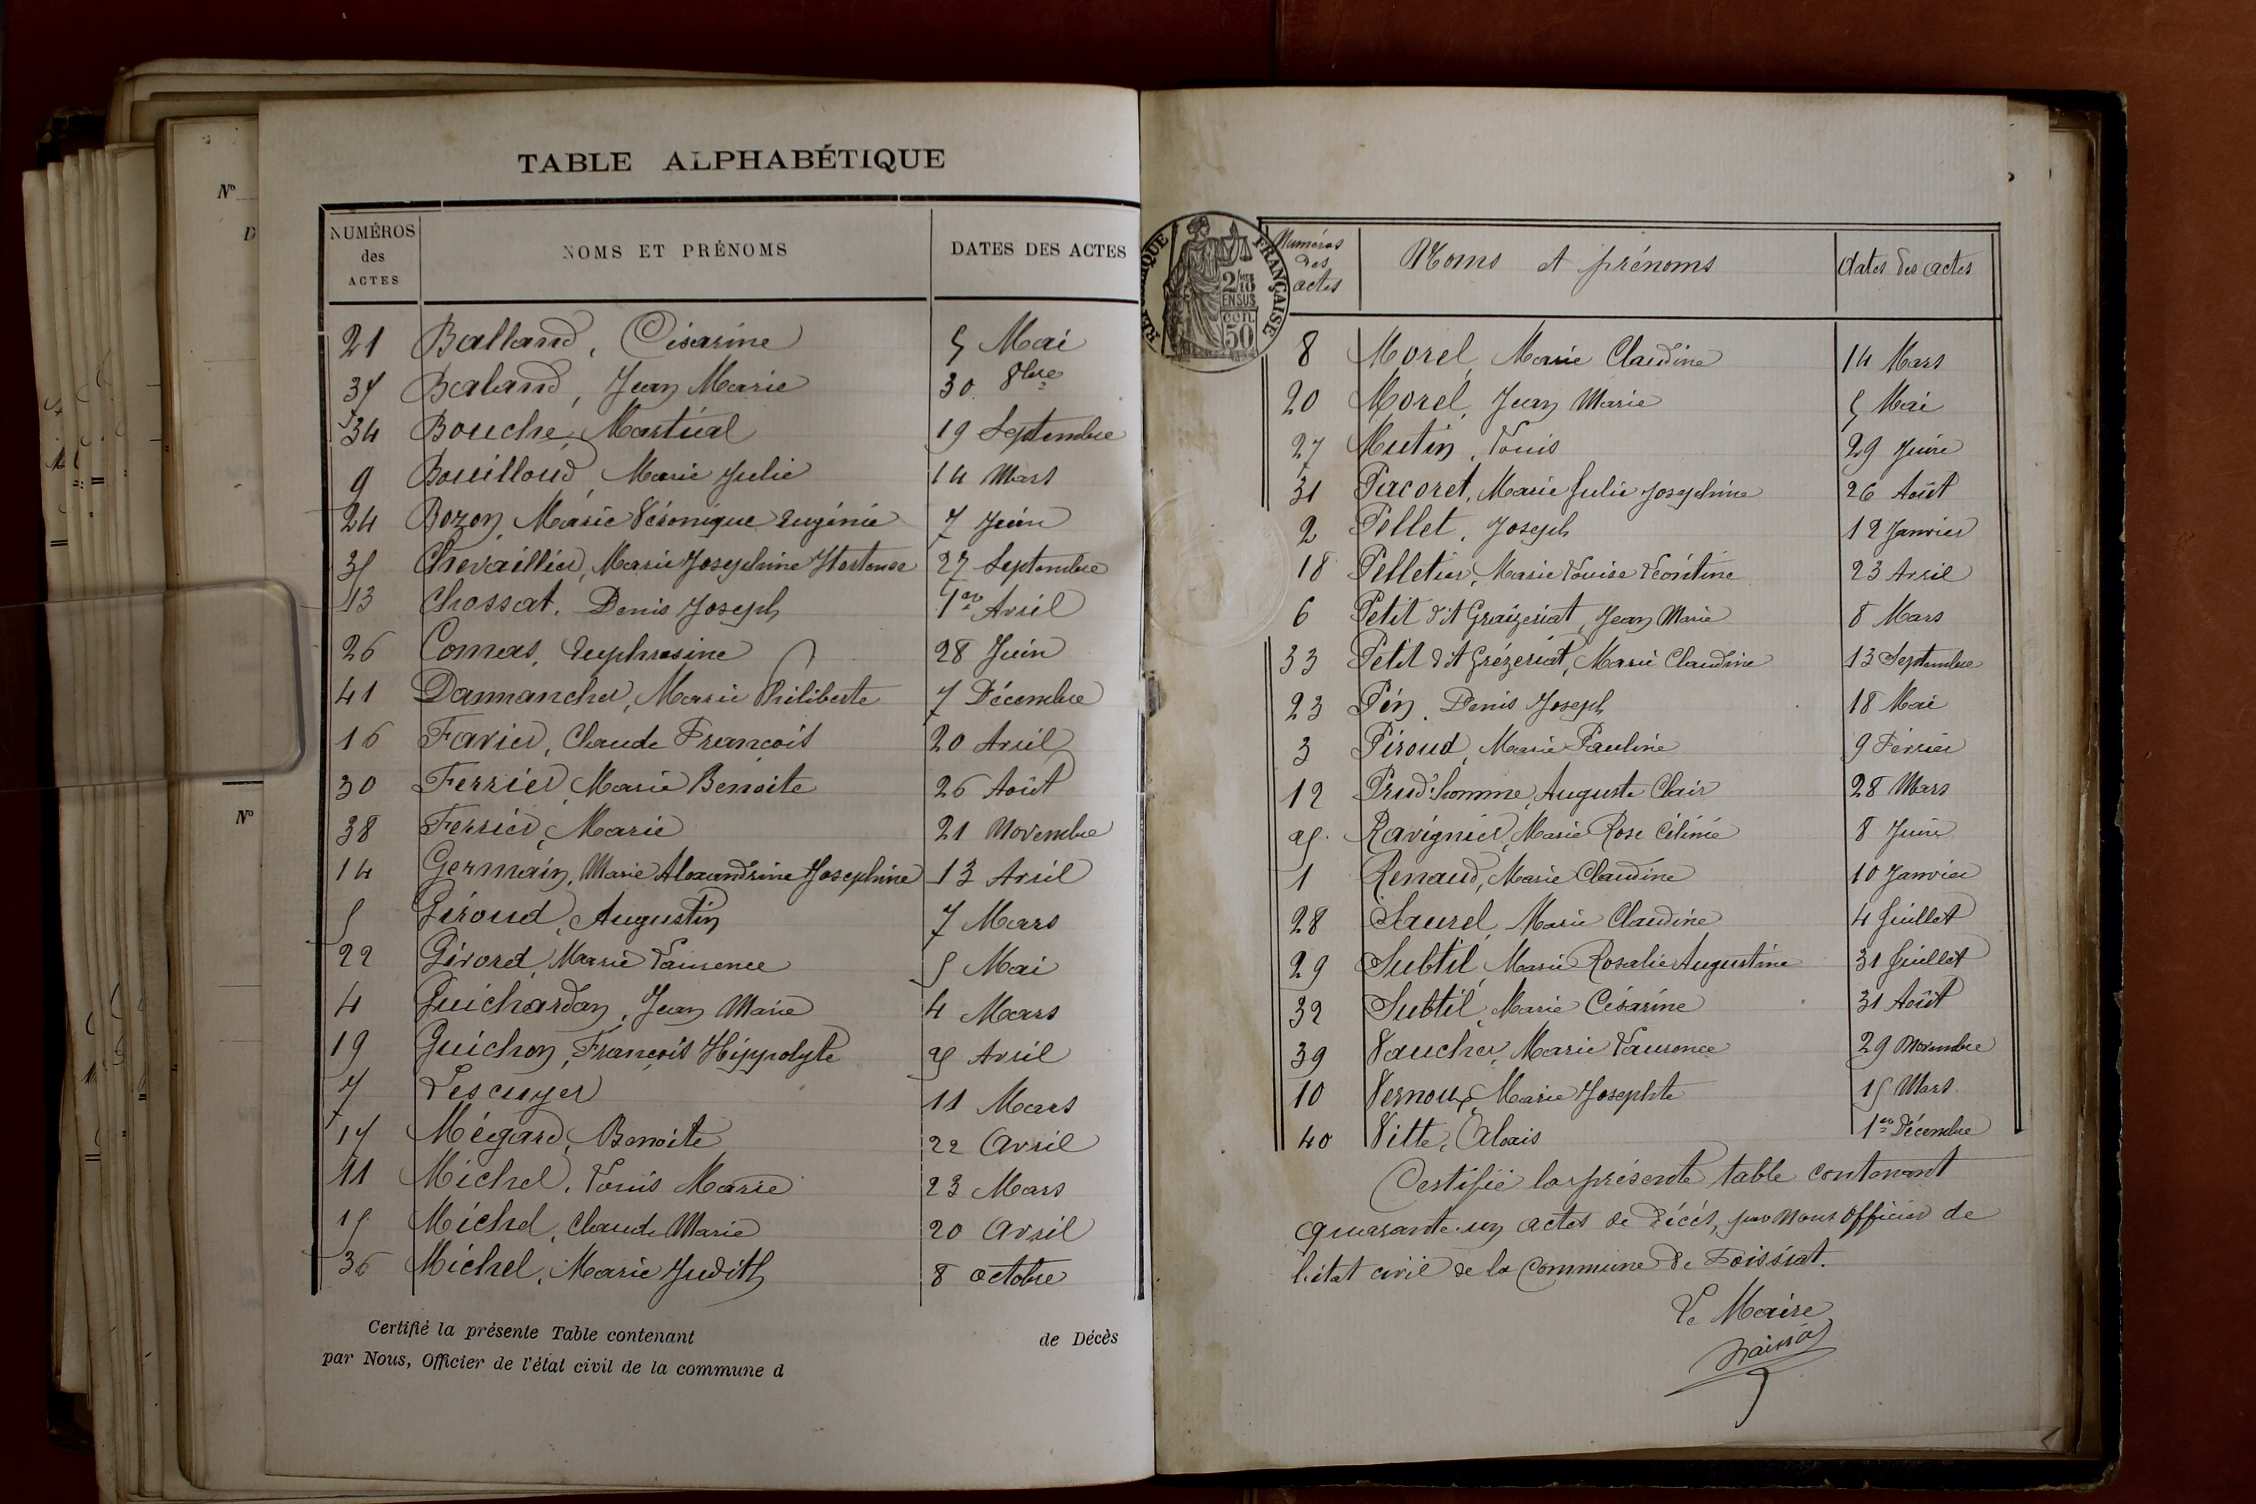 TABLE ALPHABÉTIQUE
NUMÉROS des ACTES NOMS ET PRÉNOMS DATES DES ACTES
21 Balland, Césarine 5 Mai
37 Baland, Jean Marie 30 8bre
34 Bouche, Martial 19 Septembre
9 Bouilloud, Marie Julie 14 Mars
24 Bozon, Marie Véronique Eugénie 7 Juin
35 Chevaillier, Marie Josephine Hortense 27 Septembre
13 Chossat, Denis Joseph 1er Avril
26 Comas, Euphrasine 28 Juin
41 Dammancher, Marie Philiberte 7 Décembre
16 Favier, Claude François 20 Avril
30 Ferrier, Marie Benoite 26 Août
38 Ferrier, Marie 21 Novembre
14 Germain, Marie Alexandrine Josephine 13 Avril
5 Giroud, Augustin 7 Mars
22 Girord, Marie Laurence 5 Mai
4 Guichardan, Jean Marie 4 Mars
19 Guichon, François Hippolyte 25 Avril
7 Lescuyer 11 Mars
17 Mégard, Benoite 22 Avril
11 Michel, Louis Marie 23 Mars
15 Michel, Claude Marie 20 Avril
36 Michel, Marie Judith 8 octobre
Certifié la présente Table contenant de Décès
par Nous, Officier de l'état civil de la commune d
RÉPUBLIQUE FRANÇAISE
2/10
EN SUS
50
Numéros des actes Noms et prénoms dates des actes
8 Morel, Marie Claudine 14 Mars
20 Morel, Jean Marie 5 Mai
27 Mutin, Louis 29 Juin
31 Pacoret, Marie Julie Josephine 26 Août
2 Pellet, Joseph 12 Janvier
18 Pelletier, Marie Louise Léontine 23 Avril
6 Petit dit Graizeriat, Jean Marie 8 Mars
33 Petit dit Grézeriat, Marie Claudine 13 Septembre
23 Pin, Denis Joseph 18 Mai
3 Piroud, Marie Pauline 9 Février
12 Prud'homme, Auguste Clair 28 Mars
25 Ravignier, Marie Rose Célinie 8 Juin
1 Renaud, Marie Claudine 10 Janvier
28 Saurel, Marie Claudine 4 Juillet
29 Subtil, Marie Rosalie Augustine 31 Juillet
32 Subtil, Marie Césarine 31 Août
39 Vaucher, Marie Laurence 29 Novembre
10 Vernoux, Marie Josephte 15 Mars
40 Vitte, Alexis 1er Décembre
Certifié la présente table contenant
quarante-un actes de décès, par nous Officier de
l'état civil de la Commune de Foissiat.
Le Maire